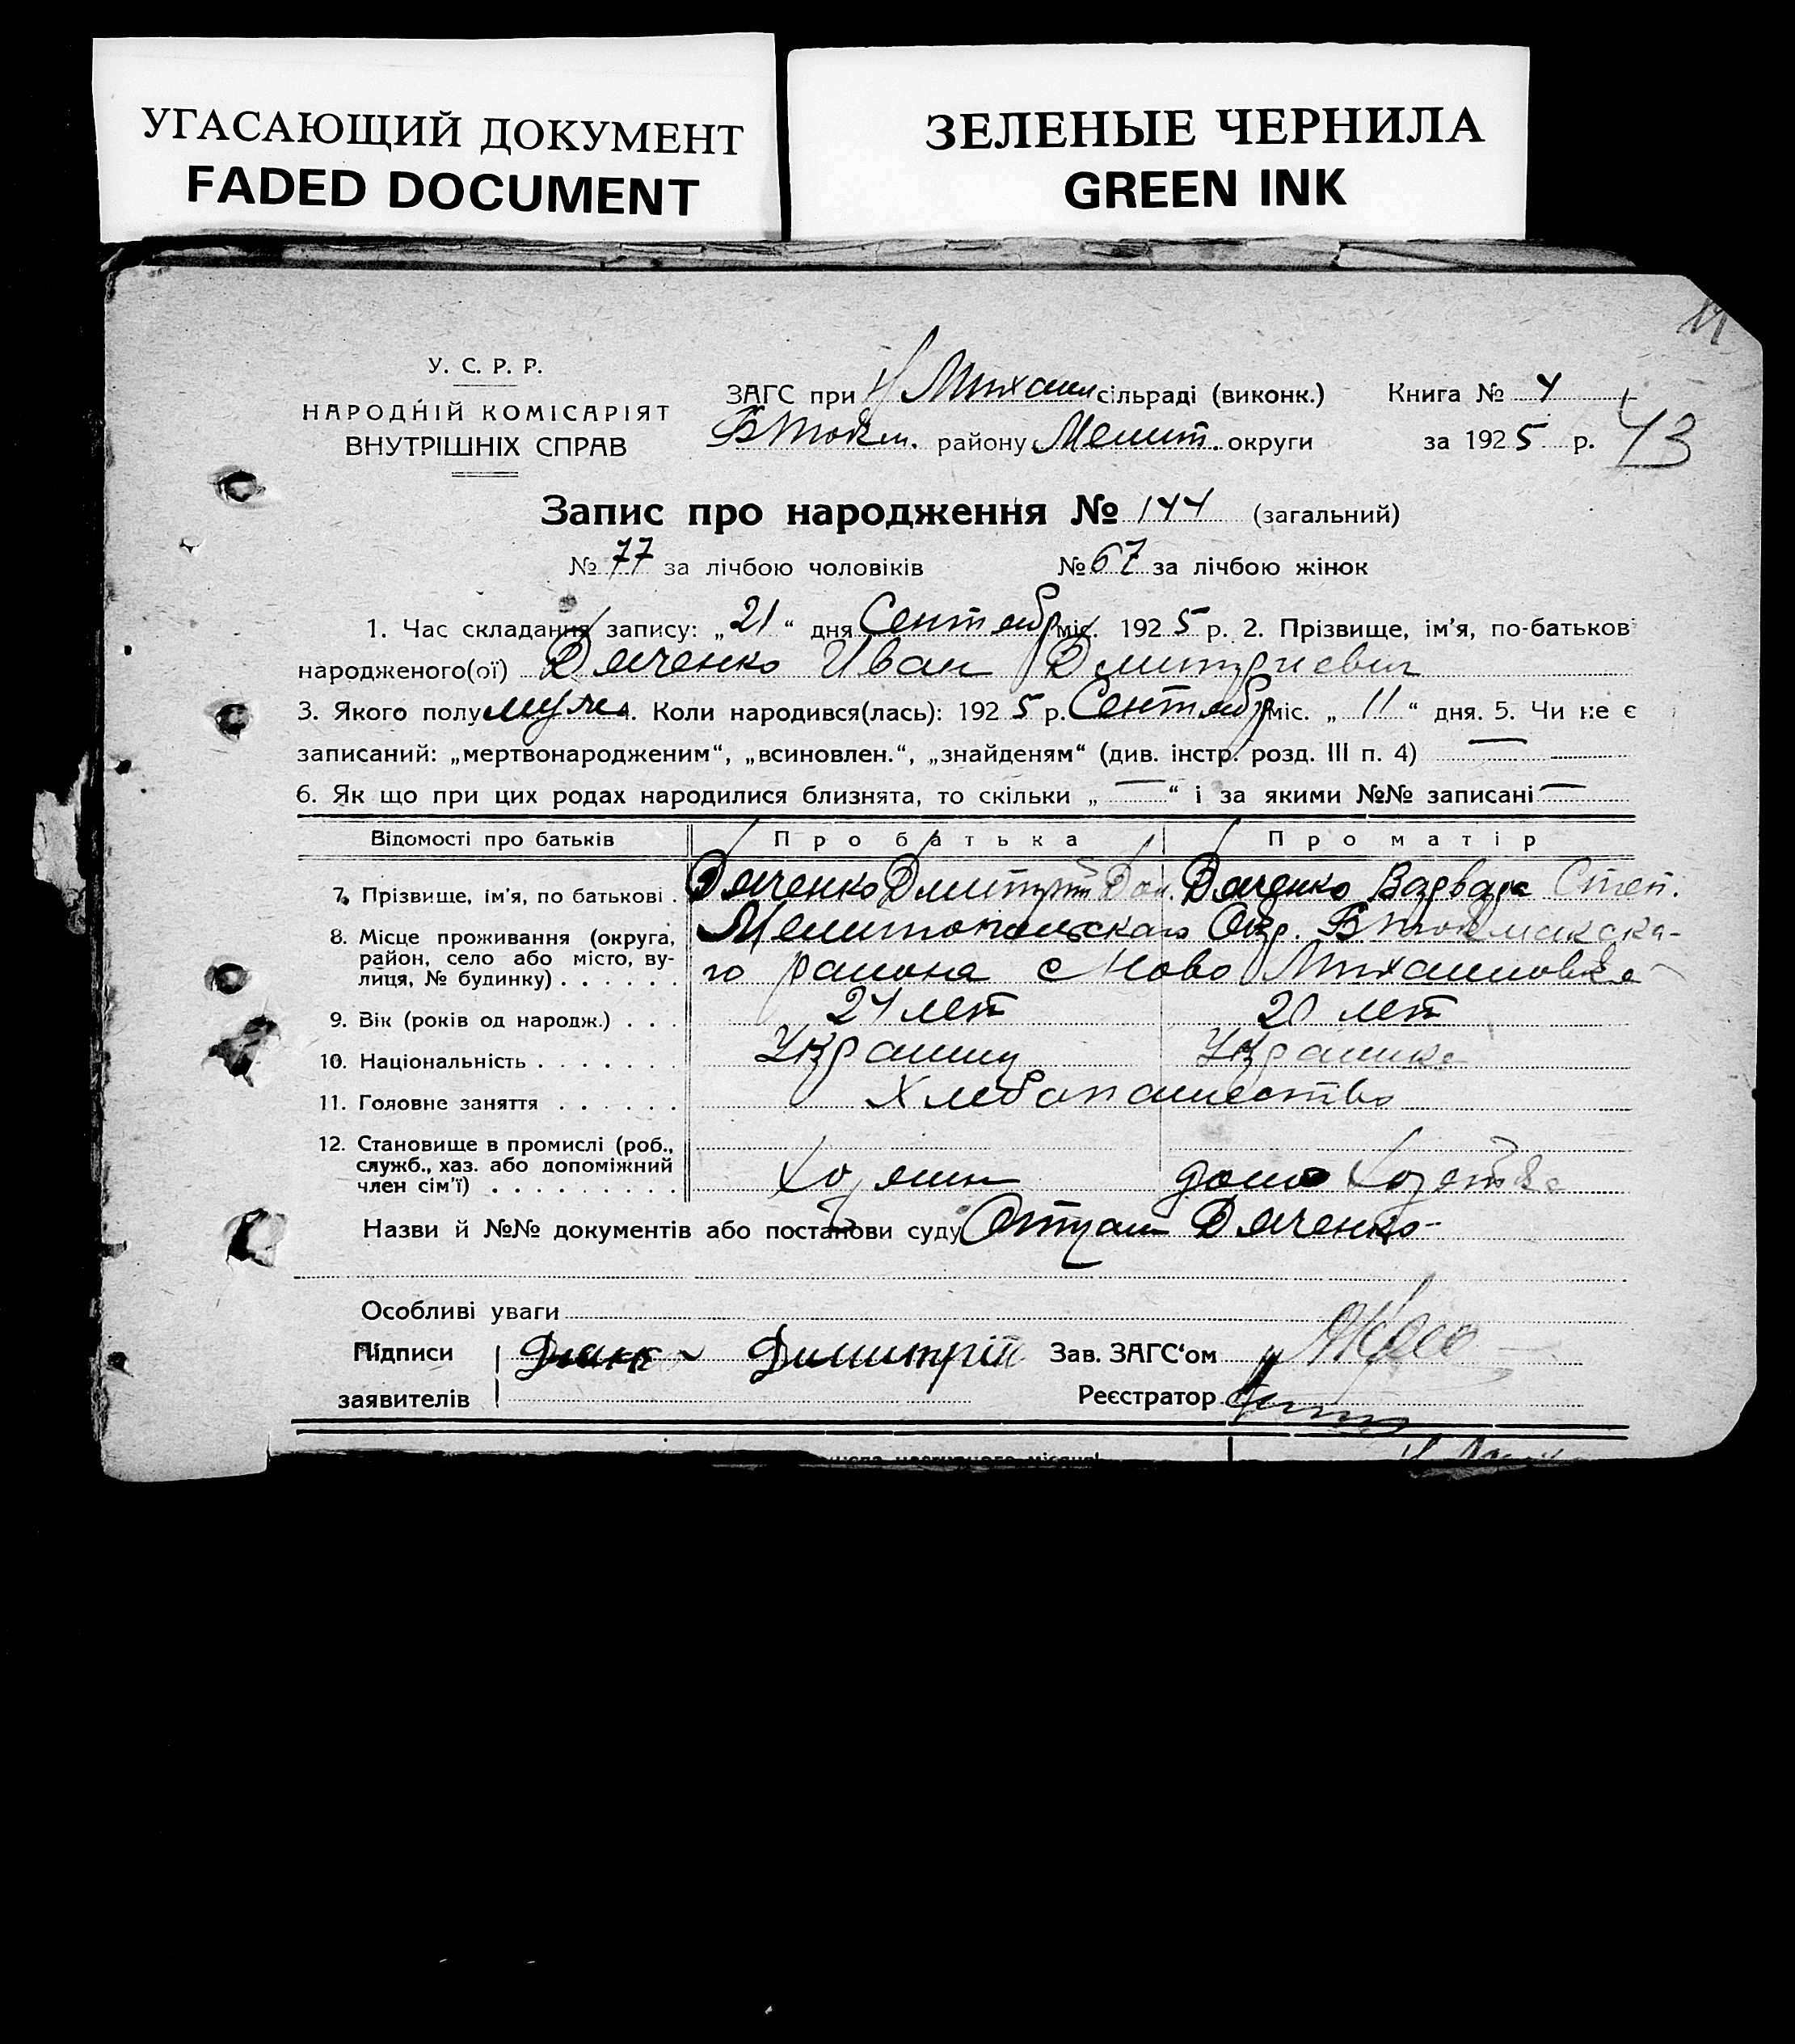 УГАСАЮЩИЙ ДОКУМЕНТ
FADED DOCUMENT
ЗЕЛЕНЫЕ ЧЕРНИЛА
GREEN INK
У. С. Р. Р.
НАРОДНІЙ КОМІСАРІЯТ
ВНУТРІШНІХ СПРАВ
ЗАГС при Н Михайл сільраді (виконк.) Книга № 4
Б Токм. району Мелит. округи за 1925 р. 43
Запис про народження № 144 (загальний)
№ 77 за лічбою чоловіків № 67 за лічбою жінок
1. Час складання запису: „21“ дня Сентябр міс. 1925 р. 2. Прізвище, ім'я, по-батьков
народженого(ої) Дяченко Иван Дмитриевич
3. Якого полу муж 4. Коли народився(лась): 1925 р. Сентябр міс. „11“ дня. 5. Чи не є
записаний: „мертвонародженим“, „всиновлен.“, „знайденям“ (див. інстр. розд. III п. 4) —
6. Як що при цих родах народилися близнята, то скільки „—“ і за якими №№ записані —
Відомості про батьків Про батька Про матір
7. Прізвище, ім'я, по батькові . Дяченко Дмитрий Дан. Дяченко Варвара Степ.
8. Місце проживання (округа, район, село або місто, вулиця, № будинку) . . . . . . Мелитопольскаго Окр. Б Токмакска-
го района с Ново Михайловке
9. Вік (років од народж.) . . . 24 лет 20 лет
10. Національність . . . . . . . Украинц Украинка
11. Головне заняття . . . . . . Хлебопашество
12. Становище в промислі (роб.,
служб., хаз. або допоміжний
член сім'ї) . . . . . . . . . Хозяин домо Хозяйка
Назви й №№ документів або постанови суду Отзыв Дяченко-
Особливі уваги
Підписи Димитрій Зав. ЗАГС'ом
заявителів Реєстратор